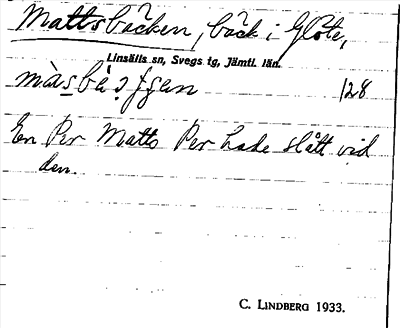 Mattsbäcken, bäck i Glöte,
Linsälls sn, Svegs tg, Jämtl. län.
128
En Per Matts Per hade slått vid
den.
C. LINDBERG 1933.